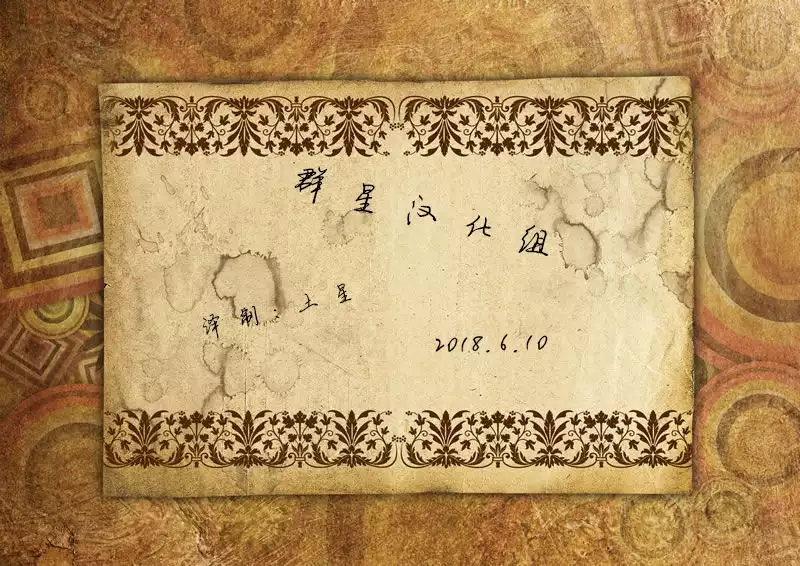 群星汉化组
译制：土星
2018.6.10